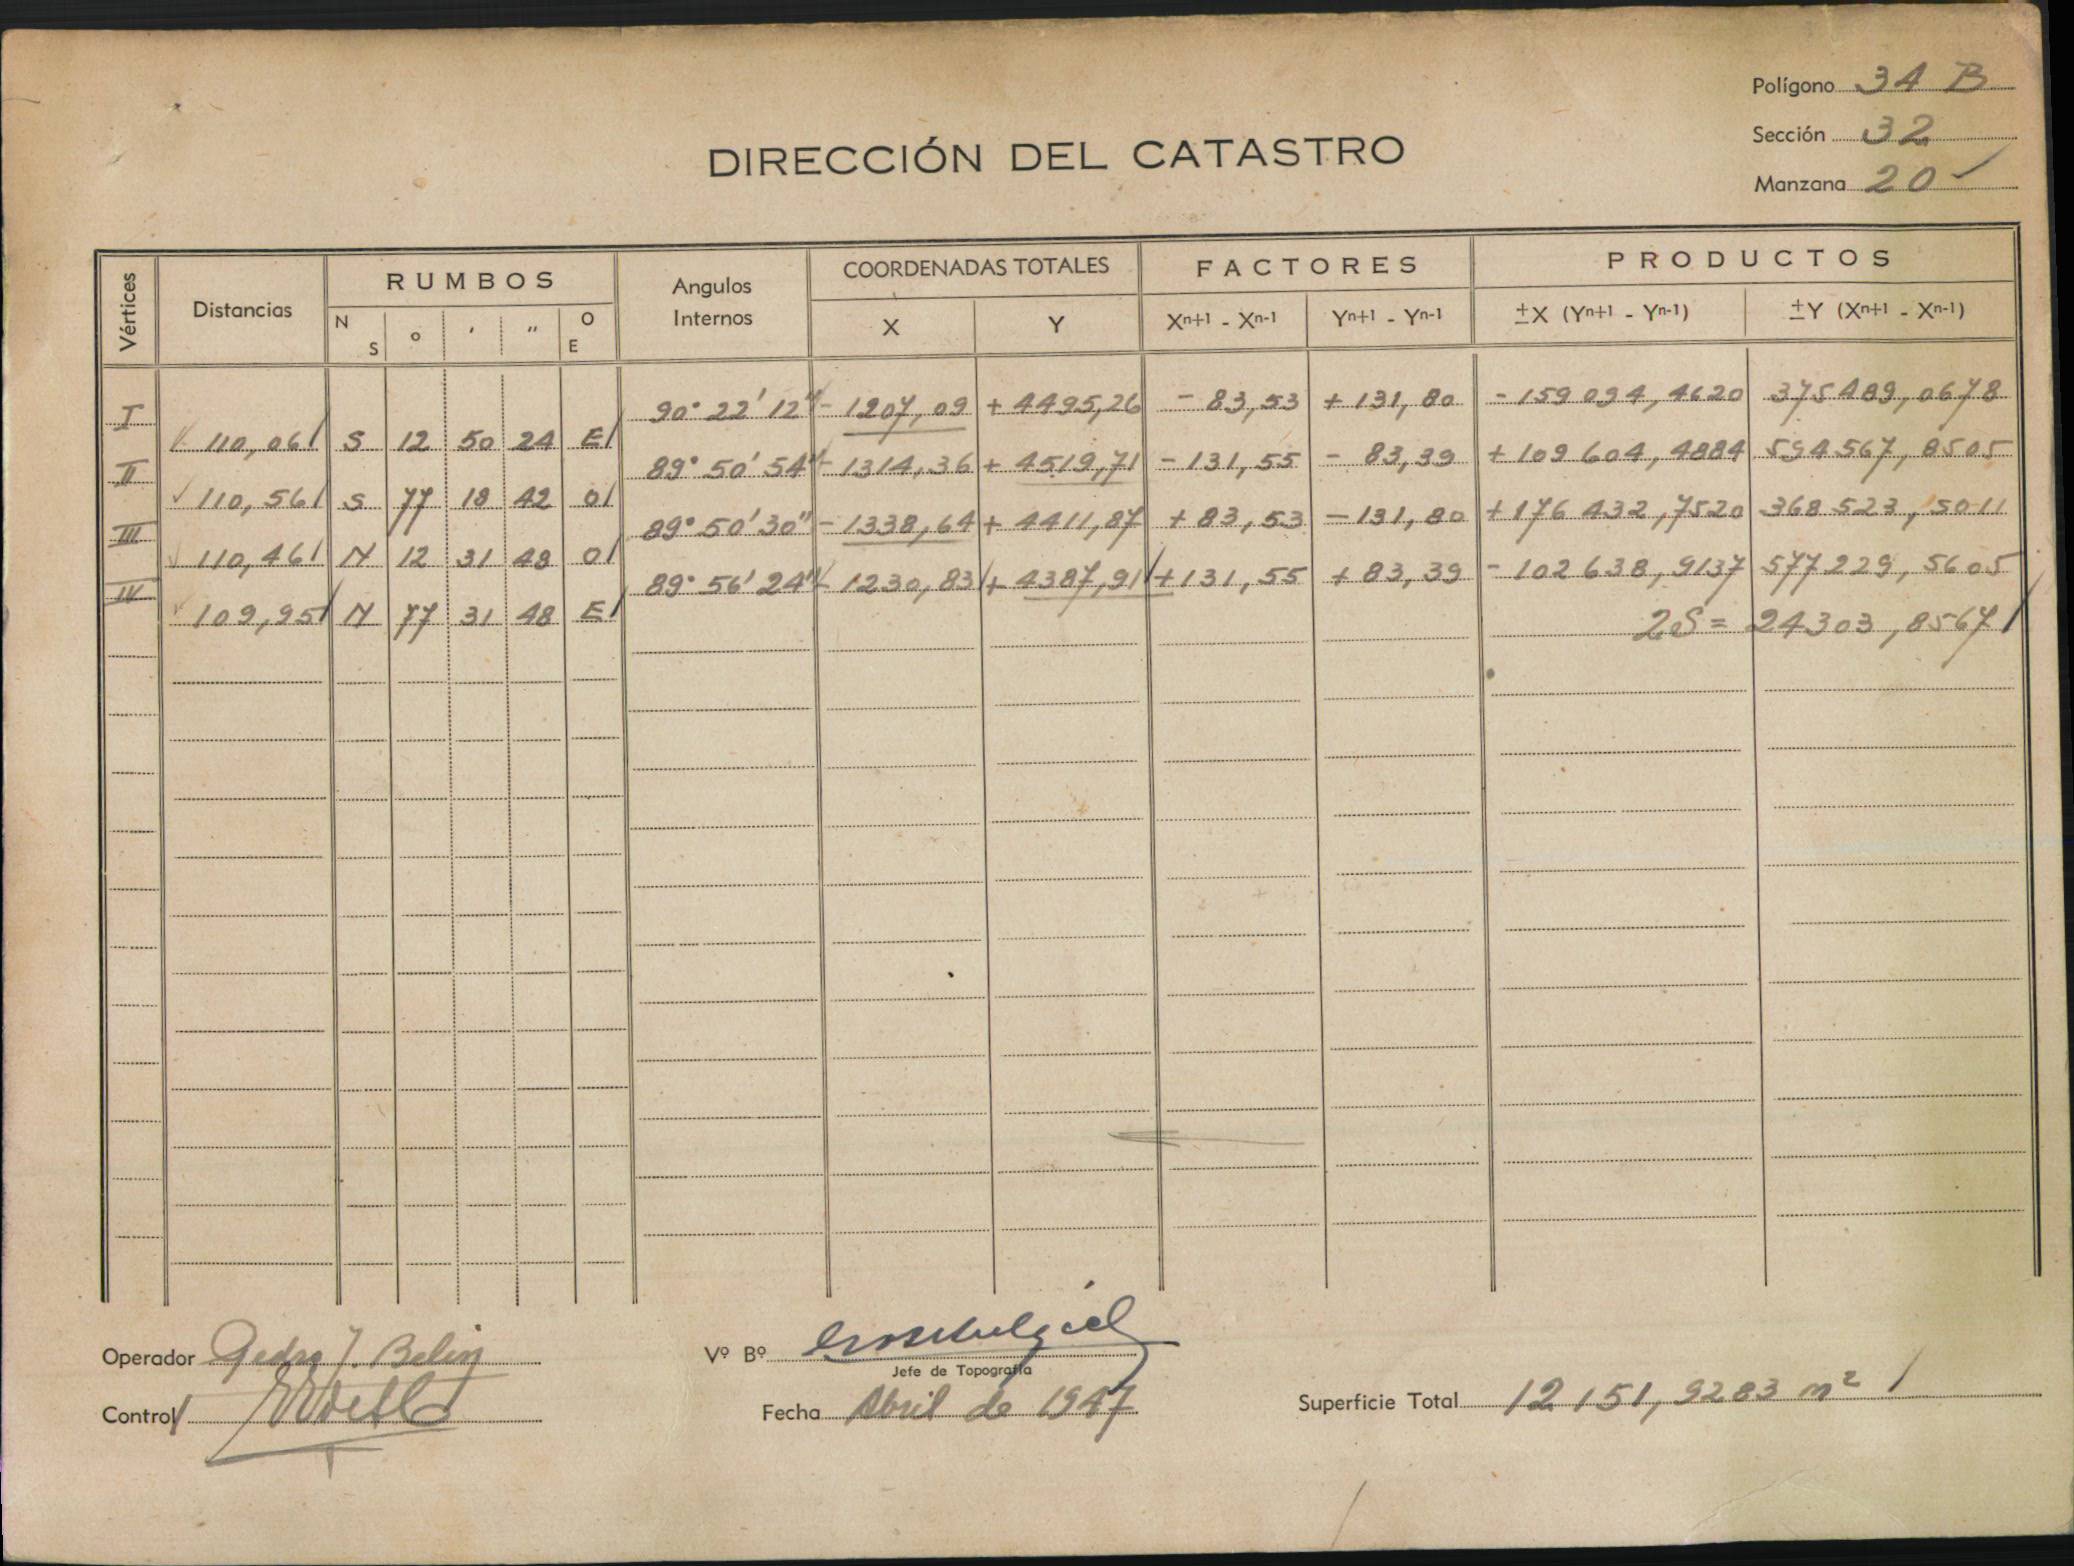 Polígono 34 B
Sección 32
Manzana 20
DIRECCIÓN DEL CATASTRO
Vértices Distancias RUMBOS Angulos Internos COORDENADAS TOTALES FACTORES PRODUCTOS
N S ° ' " O E X Y Xn+1 - Xn-1 Yn+1 - Yn-1 ±X (Yn+1 - Yn-1) ±Y (Xn+1 - Xn-1)
I 90° 22' 12" - 1207,09 + 4495,26 - 83,53 + 131,80 - 159 094,4620 375 489,0678
110,06 S 12 50 24 E
II 89° 50' 54" - 1314,36 + 4519,71 - 131,55 - 83,39 + 109 604,4884 594 567,8505
110,56 S 77 18 42 O
III 89° 50' 30" - 1338,64 + 4411,87 + 83,53 - 131,80 + 176 432,7520 368 523,5011
110,46 N 12 31 48 O
IV 89° 56' 24" - 1230,83 + 4387,91 + 131,55 + 83,39 - 102 638,9137 577 229,5605
109,95 N 77 31 48 E
2S = 24303,8567
Operador Pedro J. Belin
Vº Bº
Jefe de Topografía
Control
Fecha Abril de 1947
Superficie Total 12 151,9283 m²